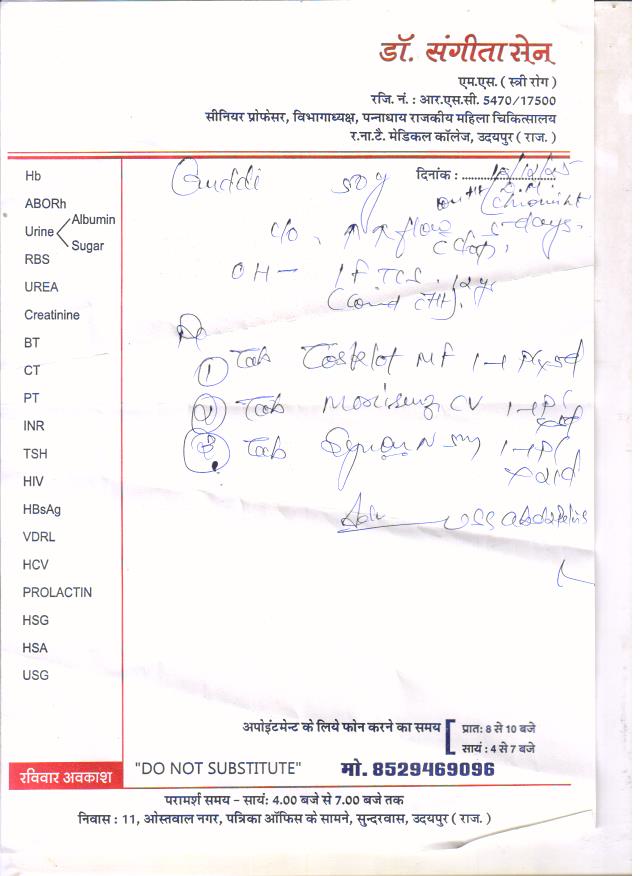 डॉ. संगीता सेन
एम.एस. ( स्त्री रोग )
रजि. नं. : आर.एस.सी. 5470/17500
सीनियर प्रोफेसर, विभागाध्यक्ष, पन्नाधाय राजकीय महिला चिकित्सालय
र.ना.टै. मेडिकल कॉलेज, उदयपुर ( राज. )
दिनांक :
Guddi 50y
c/o flow 5 days
OH –
① Tab MF 1-1
② Tab CV 1-1
③ Tab N 5mg 1-1
Adv USG
Hb
ABORh
Urine Albumin
Sugar
RBS
UREA
Creatinine
BT
CT
PT
INR
TSH
HIV
HBsAg
VDRL
HCV
PROLACTIN
HSG
HSA
USG
अपोइंटमेन्ट के लिये फोन करने का समय प्रात: 8 से 10 बजे
सायं : 4 से 7 बजे
रविवार अवकाश "DO NOT SUBSTITUTE" मो. 8529469096
परामर्श समय – सायं: 4.00 बजे से 7.00 बजे तक
निवास : 11, ओस्तवाल नगर, पत्रिका ऑफिस के सामने, सुन्दरवास, उदयपुर ( राज. )